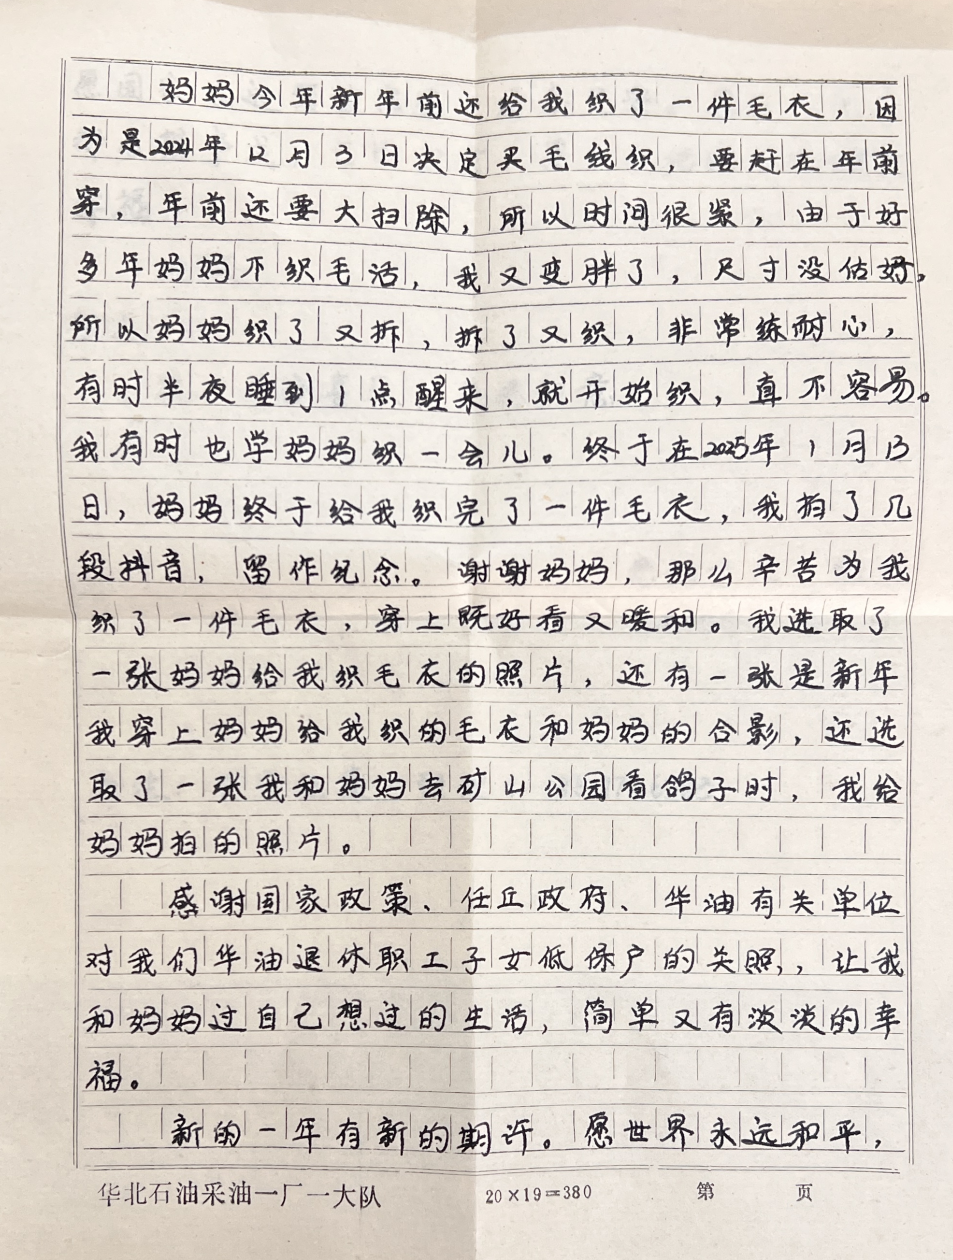 妈妈今年新年前还给我织了一件毛衣，因
为是2024年12月3日决定买毛线织，要赶在年前
穿，年前还要大扫除，所以时间很紧，由于好
多年妈妈不织毛活，我又变胖了，尺寸没估好，
所以妈妈织了又拆，拆了又织，非常练耐心，
有时半夜睡到1点醒来，就开始织，真不容易。
我有时也学妈妈织一会儿。终于在2025年1月13
日，妈妈终于给我织完了一件毛衣，我拍了几
段抖音，留作纪念。谢谢妈妈，那么辛苦为我
织了一件毛衣，穿上既好看又暖和。我选取了
一张妈妈给我织毛衣的照片，还有一张是新年
我穿上妈妈给我织的毛衣和妈妈的合影，还选
取了一张我和妈妈去矿山公园看鸽子时，我给
妈妈拍的照片。
感谢国家政策、任丘政府、华油有关单位
对我们华油退休职工子女低保户的关照，，让我
和妈妈过自己想过的生活，简单又有淡淡的幸
福。
新的一年有新的期许。愿世界永远和平，
华北石油采油一厂一大队 20×19=380 第 页